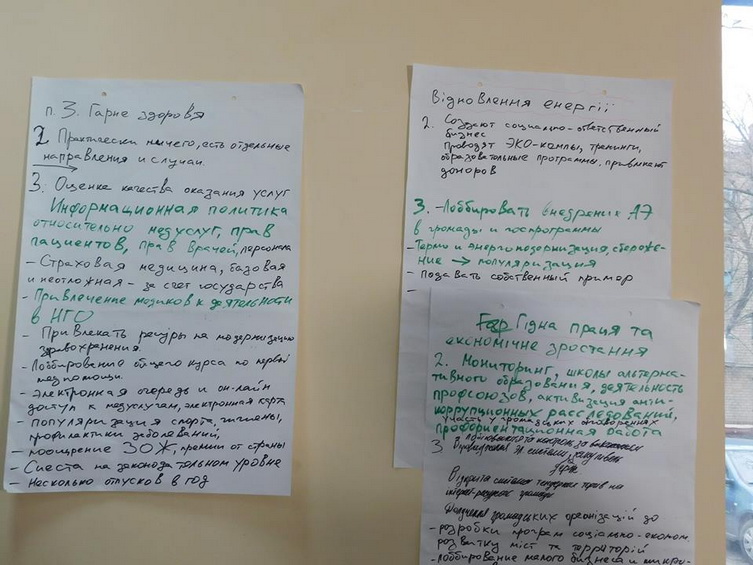 п. 3. Гарне здоров'я
2. Практически ничего, есть отдельные
направления и случаи.
3. Оценка качества оказания услуг
Информационная политика
относительно медуслуг, прав
пациентов, прав врачей, персонала
- Страховая медицина, базовая
и неотложная - за счет государства
- Привлечение медиков к деятельности
в НГО
- Привлекать ресурсы на модернизацию
здравохранения.
- Лоббирование общего курса по первой
медпомощи.
- Электронная очередь и он-лайн
доступ к медуслугам, электронная карта
- популяризация спорта, гигиены,
профилактики заболеваний,
- поощрение ЗОЖ, премии от страны
- Сиеста на законодательном уровне
- Несколько отпусков в год
Відновлення енергії
2. Создают социально-ответственный
бизнес
Проводят ЭКО-кампы, тренинги,
образовательные программы, привлекают
доноров
3. - Лоббировать внедрения АЭ
в громады и госпрограммы
- Термо и энергомодернизация, сбереже-
ние → популяризация
- Подавать собственный пример
-
Гідна праця та
економічне зростання
2. Мониторинг, школы альтерна-
тивного образования, деятельность
профсоюзов, активизация анти-
коррупционных расследований,
участь у громадських обговореннях
Профориентационная работа
3
громадських організацій до
розробки програм соціально-економ.
розвитку міст та территорій
- лоббирование малого бизнеса и микро-